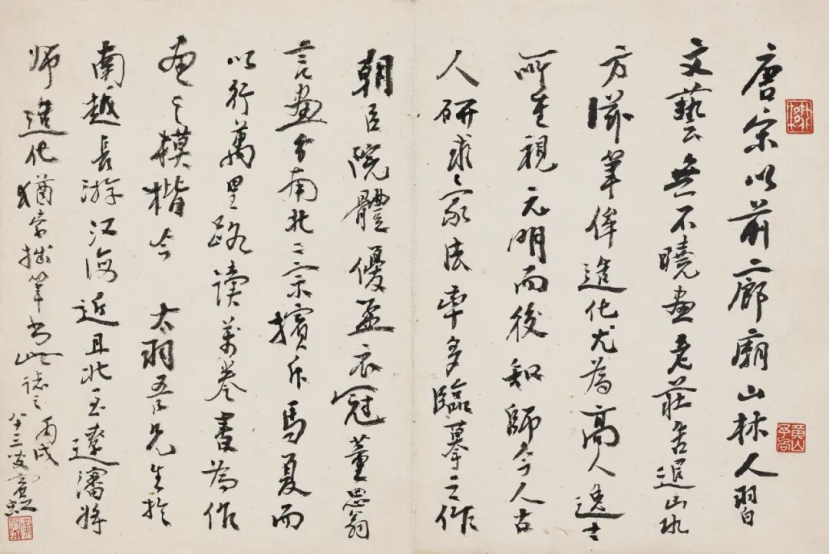 唐宋以前廊廟山林人習
文藝無不曉畫老莊告退山水
方滋筆侔造化尤為高人逸士
所重視元明而後知師今人古
人研求家法率多臨摹之作
朝臣院體優孟衣冠董思翁
言畫分南北二宗擯斥馬夏而
以行萬里路讀萬卷書為作
畫之模楷 太羽吾兄生於
南越長游江海近且北至遼瀋將
師造化猶索拙筆書此誌之 丙戌
八十三叟賓虹
黃山予向